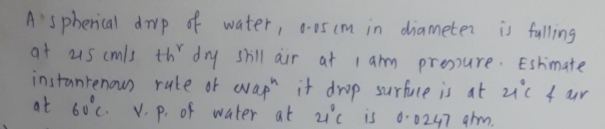 A spherical drop of water, 0.05 cm in diameter is falling
at 215 cm/s thr dry still air at 1 atm pressure. Estimate
instantenous rate of evapn if drop surface is at 21°C & air
at 60°C. V.P. of water at 21°C is 0.0247 atm.